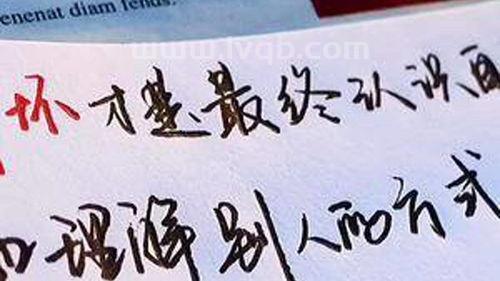 enenat diam fends.
www.lvqb.com
坏才是最终认识
理解别人的方式